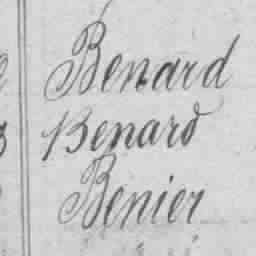 Benard
Benard
Benier